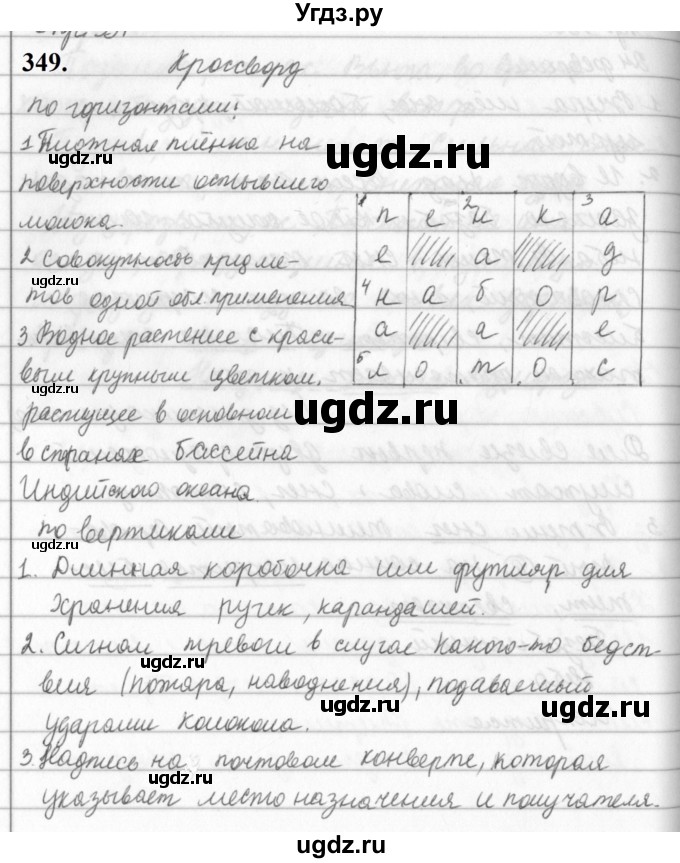 Угдз.ру
349. Кроссворд
по горизонтали:
1 Плотная плёнка на
поверхности остывшего
молока.
2 Совокупность предме-
тов одной обл. применения
3. Водное растение с краси-
вым крупным цветком,
растущее в основном
в странах бассейна
Индийского океана
по вертикали
1. Длинная коробочка или футляр для
хранения ручек, карандашей.
2. Сигнал тревоги в случае какого-то бедст-
вия (пожара, наводнения), подаваемый
ударами колокола.
3. Надпись на почтовом конверте, которая
указывает место назначения и получателя.
1 п е 2 н к 3 а
е а д
4 н а б о р
а а е
5 л о т о с
ugdz.ru
ugdz.ru
ugdz.ru
ugdz.ru
ugdz.ru
ugdz.ru
ugdz.ru
ugdz.ru
ugdz.ru
ugdz.ru
Угдз.ру